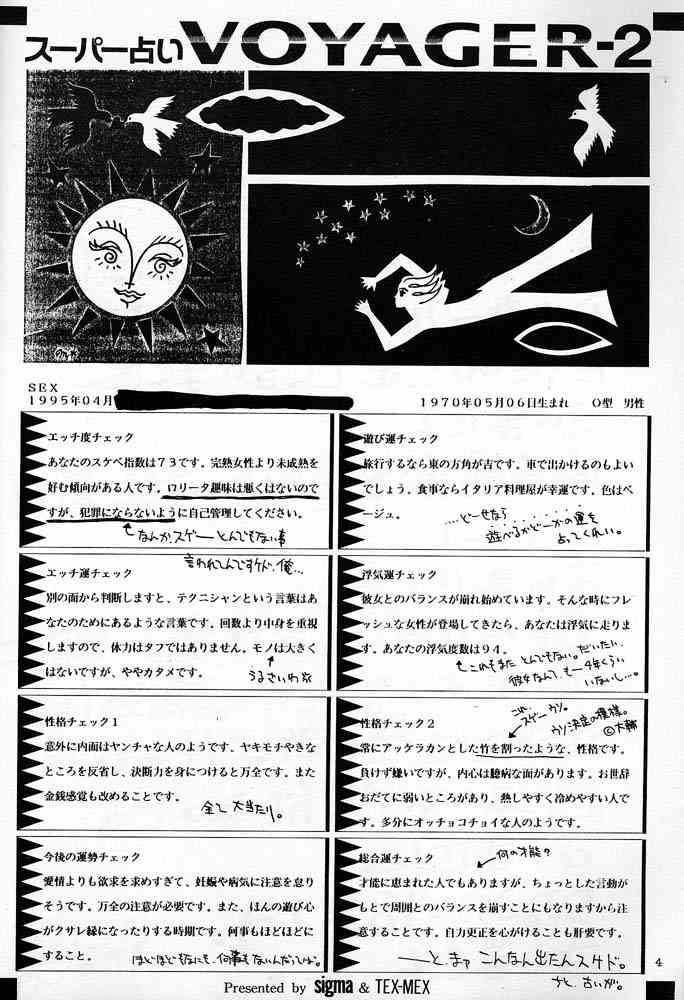 スーパー占いVOYAGER-2
SEX
1995年04月
1970年05月06日生まれ O型 男性
エッチ度チェック
あなたのスケベ指数は73です。完熟女性より未成熟を
好む傾向がある人です。ロリータ趣味は悪くはないので
すが、犯罪にならないように自己管理してください。
なんか、スゲーとんでもない事
言われてんですケド、俺…
遊び運チェック
旅行するなら東の方角が吉です。車で出かけるのもよい
でしょう。食事ならイタリア料理屋が幸運です。色はベ
ージュ。
....どーせなら
遊べるかどーかの運を
占ってくれい。
エッチ運チェック
別の面から判断しますと、テクニシャンという言葉はあ
なたのためにあるような言葉です。回数より中身を重視
しますので、体力はタフではありません。モノは大きく
はないですが、ややカタメです。
うるさいわ
浮気運チェック
彼女とのバランスが崩れ始めています。そんな時にフレ
ッシュな女性が登場してきたら、あなたは浮気に走りま
す。あなたの浮気度数は94。
これもまた とんでもない。だいたい、
彼女なんて、もー4年くらい
いないし…。
性格チェック1
意外に内面はヤンチャな人のようです。ヤキモチやきな
ところを反省し、決断力を身につけると万全です。また
金銭感覚も改めることです。
全て大当たり。
性格チェック2
これ、
スゲーウソ。
ウソ決定の模様。
©大輔
常にアッケラカンとした竹を割ったような、性格です。
負けず嫌いですが、内心は臆病な面があります。お世辞
おだてに弱いところがあり、熱しやすく冷めやすい人で
す。多分にオッチョコチョイな人のようです。
今後の運勢チェック
愛情よりも欲求を求めすぎて、妊娠や病気に注意を怠り
そうです。万全の注意が必要です。また、ほんの遊び心
がクサレ縁になったりする時期です。何事もほどほどに
すること。
ほどほどもなにも、何事もないんだってば。
総合運チェック
何の才能?
才能に恵まれた人でもありますが、ちょっとした言動が
もとで周囲とのバランスを崩すことにもなりますから注
意することです。自力更正を心がけることも肝要です。
――と、まァ こんなん出たんスケド。
4
Presented by sigma & TEX-MEX